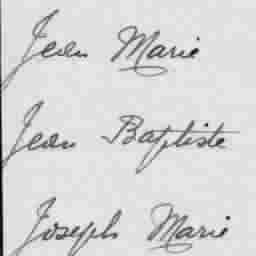 Jean Marie
Jean Baptiste
Joseph Marie